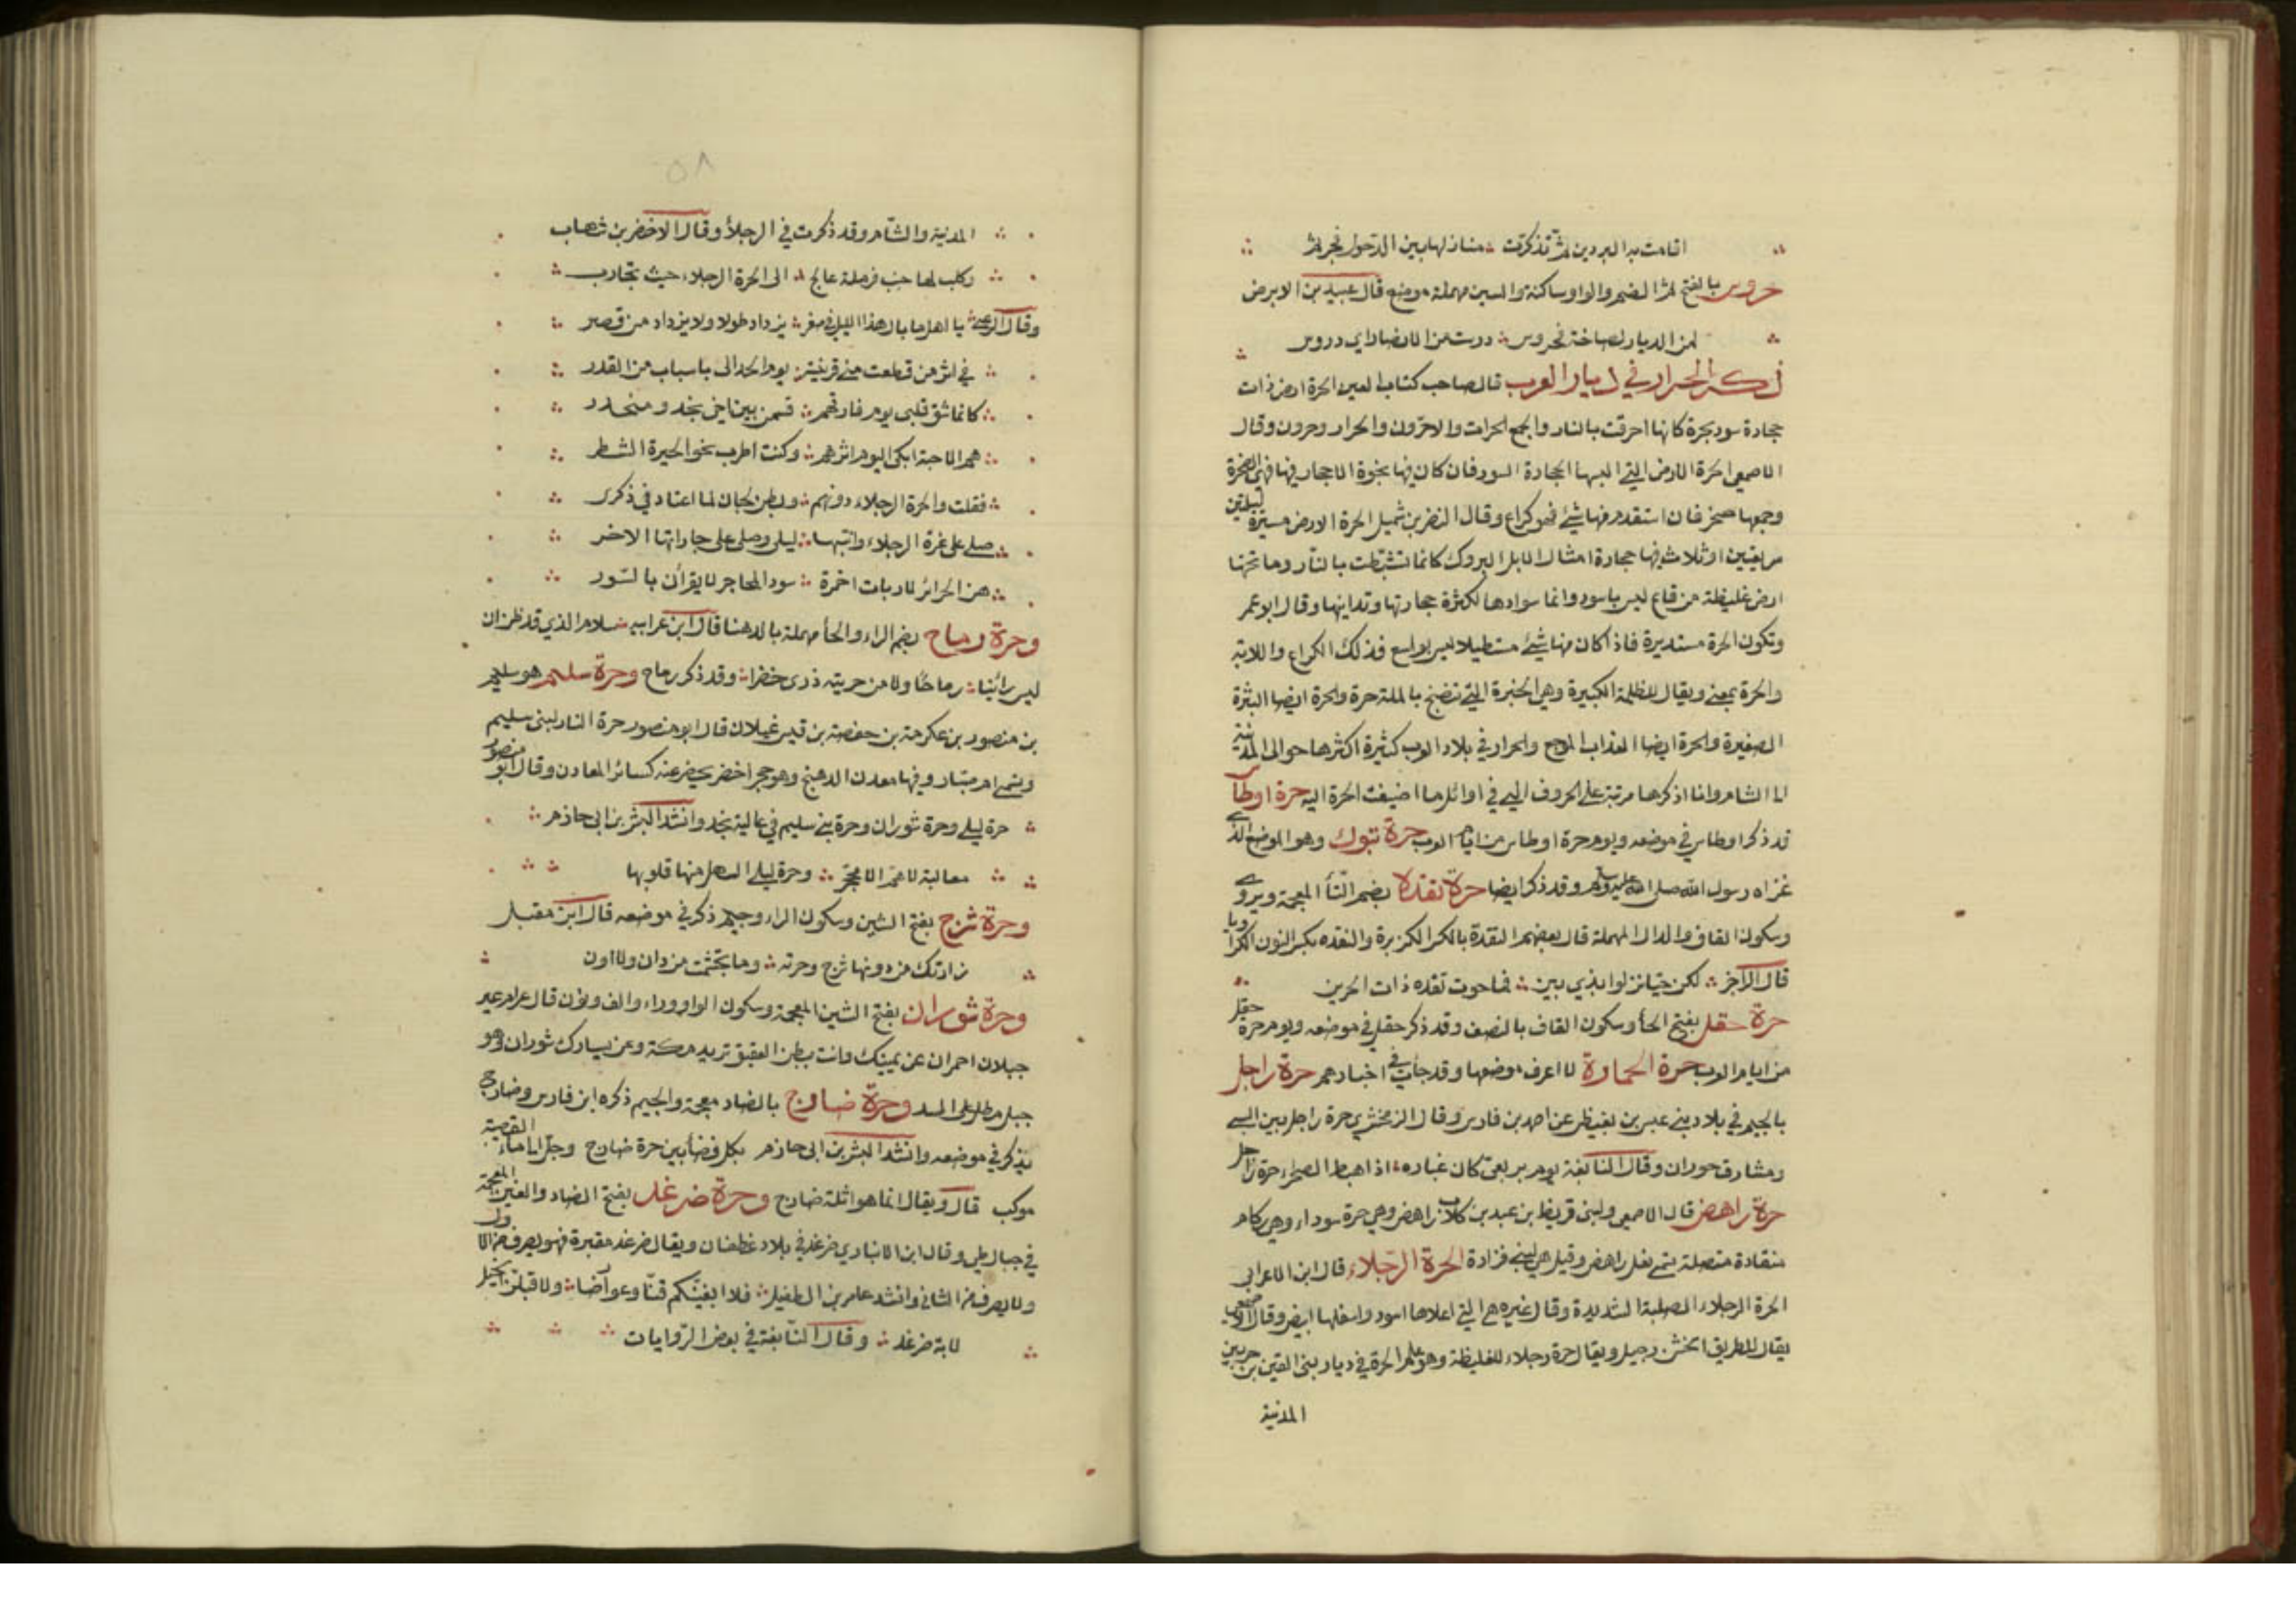 اقامت به البردين ثم تذكرت منازلها بين الدخول فجرثم
حروس بالفتح ثم الضم والواو ساكنة والسين مهملة موضع قال عبيد بن الابرص
لمن الديار بصاحة فحروس درست من الاقفار اي دروس
ذكر الحرار في ديار العرب قال صاحب كتاب العين الحرة ارض ذات
حجارة سود نخرة كانها احرقت بالنار والجمع الحرات والاحرّون والحرار وحرون وقال
الاصمعي الحرة الارض التي البسها الحجارة السود فان كان فيها نجوة الاحجار فيها فهي الصخرة
وجمعها صخر فان استقدم منها شيء فهو كراع وقال النضر بن شميل الحرة الارض مسيرة ليلتين
سريعتين او ثلاث فيها حجارة امثال الابل البروك كانما تشيطت بالنار وما تحتها
ارض غليظة من قاع ليس باسود وانما سوادها لكثرة حجارتها وتدانيها وقال ابو عمر
وتكون الحرة مستديرة فاذا كان منها شيء مستطيلا ليس بواسع فذلك الكراع واللابة
والحرة بمعنى ويقال للظلمة الكبيرة وهي الخبزة التي تنضج بالملة حرة والحرة ايضا البثرة
الصغيرة والحرة ايضا العذاب الموجع والحرار في بلاد العرب كثيرة اكثرها حوالي المدينة
الى الشام وانا اذكرها مرتبة على الحروف التي في اوائل ما اضيفت الحرة اليه حرة اوطاس
قد ذكر اوطاس في موضعه ويوم حرة اوطاس من ايام العرب حرة تبوك وهو الموضع الذي
غزاه رسول الله صلى الله عليه وسلم وقد ذكر ايضا حرة تقدة بضم التاء المعجمة ويروى
وسكون القاف والدال المهملة قال بعضهم التقدة بالكسر الكزبرة والنقده بكسر النون الكراويا
قال الراجز لكن حيّا نزلوا بذي بين فما حوت تقده ذات الحرين
حرة حقل بفتح الحاء وسكون القاف بالنصف وقد ذكر حقل في موضعه ويوم حرة حقل
من ايام العرب حرة الحمارة لا اعرف موضعها وقد جاءت في اخبارهم حرة راجل
بالجيم في بلاد بني عبس بن بغيظ عن احمد بن فارس وقال الزمخشري حرة راجل بين السر
ومشارف حوران وقال النابغة يوم بربعي كان غباره اذا هبط الصحراء حرة راجل
حرة راهص قال الاصمعي ولبني قريظ بن عبد بن كلاب راهص وهي حرة سوداء وهي اكام
منقادة متصلة تسمى نعل راهص وقيل هي لبني فزارة الحرة الرجلاء قال ابن الاعرابي
الحرة الرجلاء الصلبة الشديدة وقال غيره هي التي اعلاها اسود واسفلها ابيض وقال الاصمعي
يقال للطريق الخشن رجيل ويقال حرة رجلاء للغليظة وهو علم لحرة في ديار بني القين بن جسر بين
المدينة
٥٨
المدينة والشام وقد ذكرت في الرجلاء وقال الاخضر بن شهاب
وكلب لها خبت فرملة عالج الى الحرة الرجلاء حيث تحارب
وقال الراعي يا اهل ما بال هذا الليل في صفر يزداد طولا ولا يزداد من قصر
في اثر من قطعت مني قرينته يوم الحدالى باسباب من القدر
كانما شق قلبي يوم فارقهم قسمين بين اخي نجد ومنحدر
هم الاحبة ابكي اليوم اثرهم وكنت اطرب نحو الحيرة الشطر
فقلت والحرة الرجلاء دونهم وبطن لجان لما اعتادني ذكري
صلى على عزة الرحلاء وابنتها ليلى وصلى على جاراتها الاخر
هن الحرائر لا ربات اخمرة سود المحاجر لا يقرأن بالسّور
وحرة رماح بضم الراء والحاء مهملة بالدهنا قال ابن عرابيه سلام الذي قد ظن ان
ليس رائيا رماحا ولا من حريته ذرى خضرا وقد ذكر رماح وحرة سليم هو سليم
بن منصور بن عكرمة بن حفصة بن قيس غيلان قال ابو منصور حرة النار لبني سليم
وتسمى ام صبار وفيها معدن الدهنج وهو حجر اخضر يحفر عنه كسائر المعادن وقال ابو منصور
حرة ليلى وحرة شوران وحرة بني سليم في عالية نجد وانشد لبشر بن ابي حازم
معالية لا هم الا محجر وحرة ليلى السهل منها فلوبها
وحرة شرج بفتح الشين وسكون الراء وجيم ذكر في موضعه قال ابن مقبل
زارتك من دونها شرج وحرته وما تجشمت من دان ولا اون
وحرة شوران بفتح الشين المعجمة وسكون الواو وراء والف ونون قال عرام عير
جبلان احمران عن يمينك وانت ببطن العقيق تريد مكة وعن يسارك شوران وهو
جبل مطل على السد وحرة ضارج بالضاد معجمة والجيم ذكره ابن فارس وضارج
يذكر في موضعه وانشد لبشر بن ابي حازم بكل فضاء بين حرة ضارج وجل الى ماء القصيبة
موكب قال ويقال انما هو اثلة ضارج وحرة ضرغد بفتح الضاد والغين المعجمة
في جبال طي وقال ابن الانباري ضرغد في بلاد غطفان ويقال ضرغد مقبرة فهو يصرف من الاول
ولا يصرف من الثاني وانشد عامر بن الطفيل فلا ابغينكم قنّا وعوارضا ولاقبلن الخيل
لابة ضرغد وقال النابغة في بعض الروايات